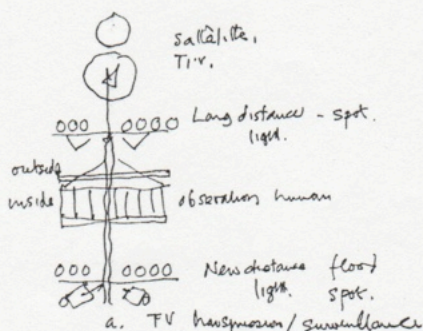 satellite.
T.V.
Long distance - spot.
light.
outside
inside
observation human
distance flood
light. spot.
a. TV transmission / surveillance